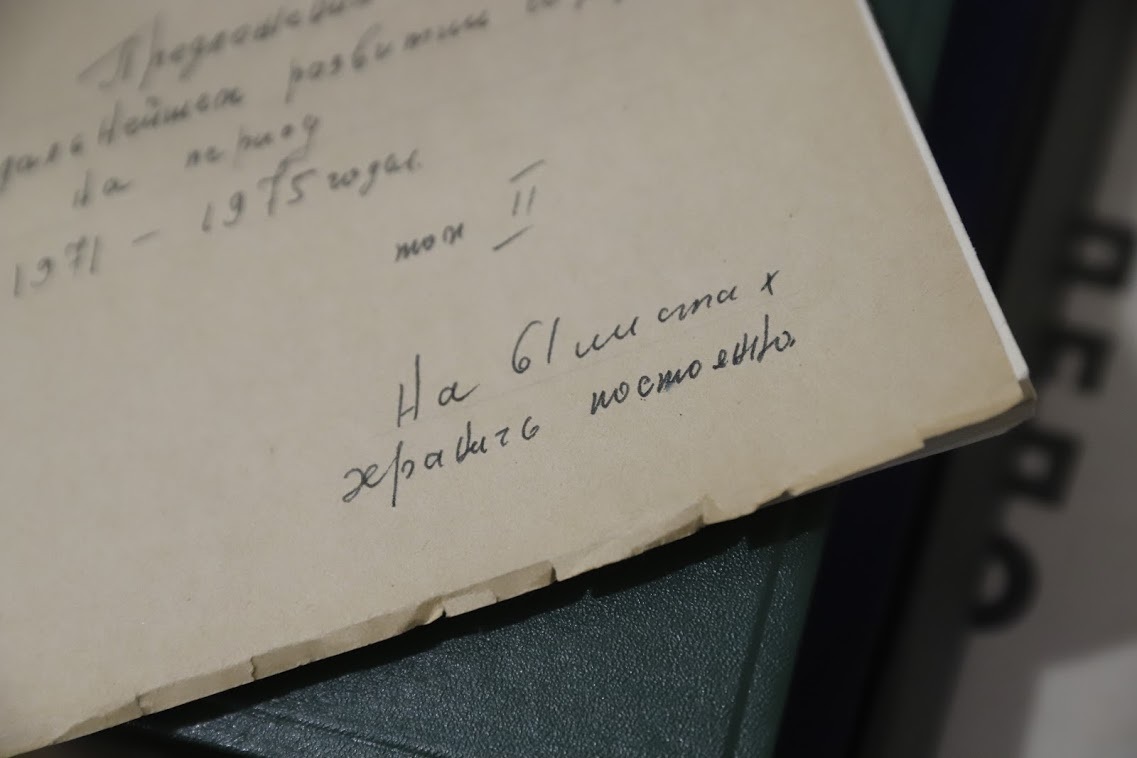 Предложения
дальнейшем развитии
на период
1971 - 1975 годы.
том II
На 61 листах
хранить постоянно.